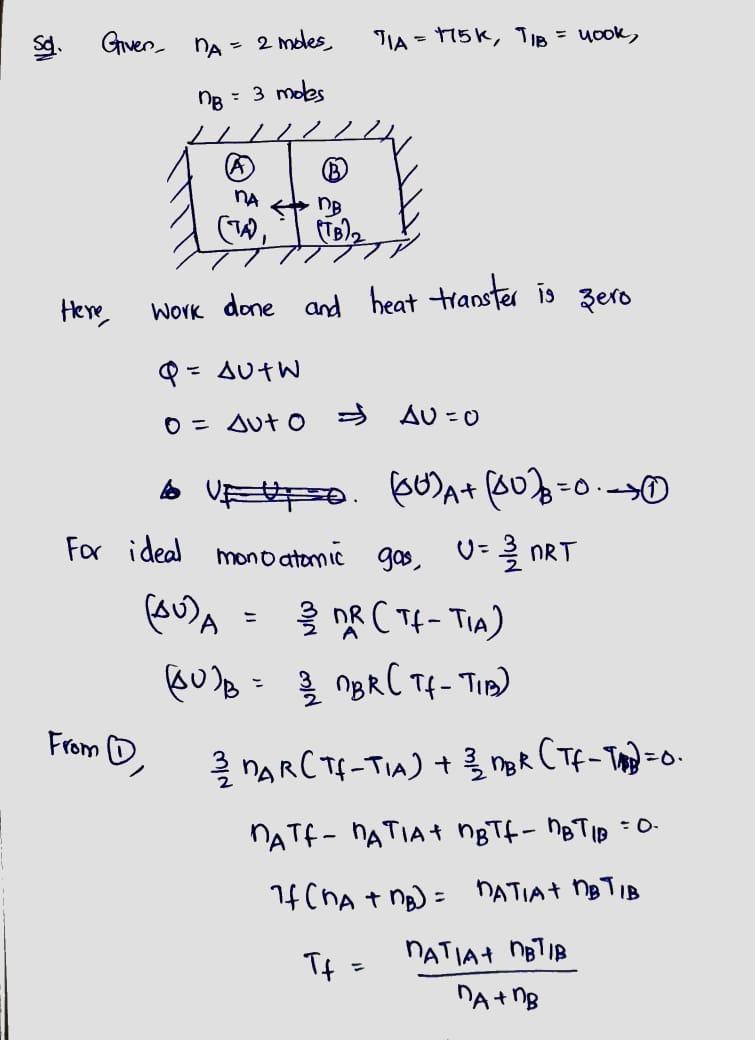 Sol. Given nA = 2 moles, T1A = 175K, T1B = 400K,
nB = 3 moles
A B
nA nB
(TA)1 (TB)2
Here, work done and heat transfer is zero
Q = ΔU+W
0 = ΔU+0 ⇒ ΔU=0
(ΔU)A+(ΔU)B=0.→①
For ideal monoatomic gas, U= 3/2 nRT
(ΔU)A = 3/2 nAR(Tf-T1A)
(ΔU)B = 3/2 nBR(Tf-T1B)
From ①, 3/2 nAR(Tf-T1A) + 3/2 nBR(Tf-T1B)=0.
nATf- nAT1A+ nBTf- nBT1B =0.
Tf(nA + nB)= nAT1A+ nBT1B
Tf = nAT1A+ nBT1B
nA+nB